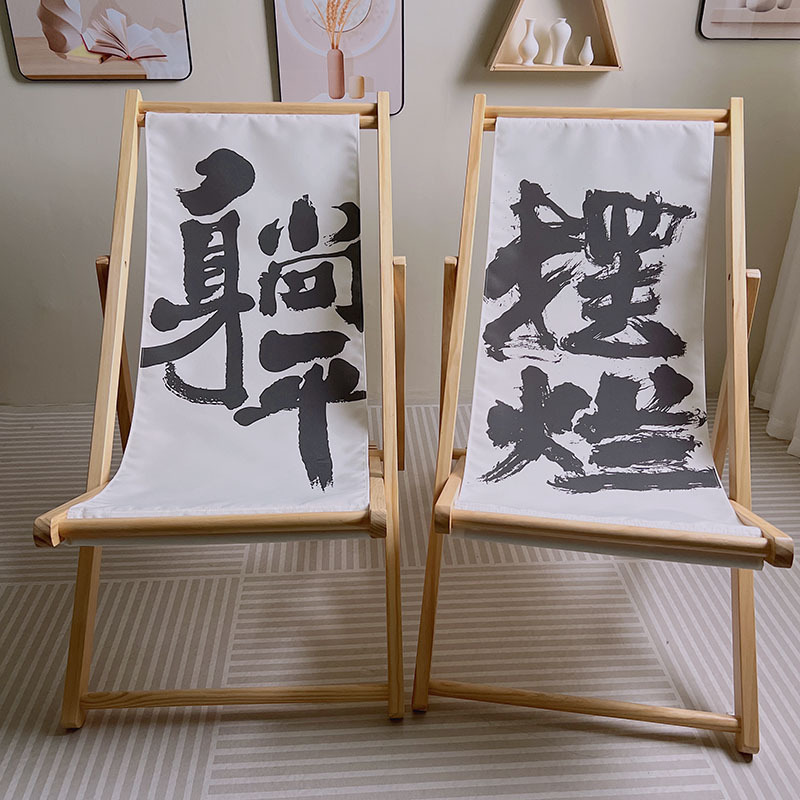 躺平
摆烂